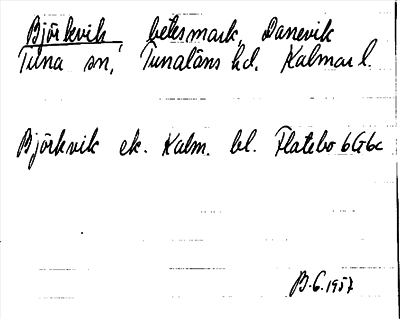 Björkvik, betesmark, Danevik
Tuna sn, Tunaläns hd. Kalmar l.
Björkvik ek. Kalm. bl. Flatebo 6G6c
B.G.1957